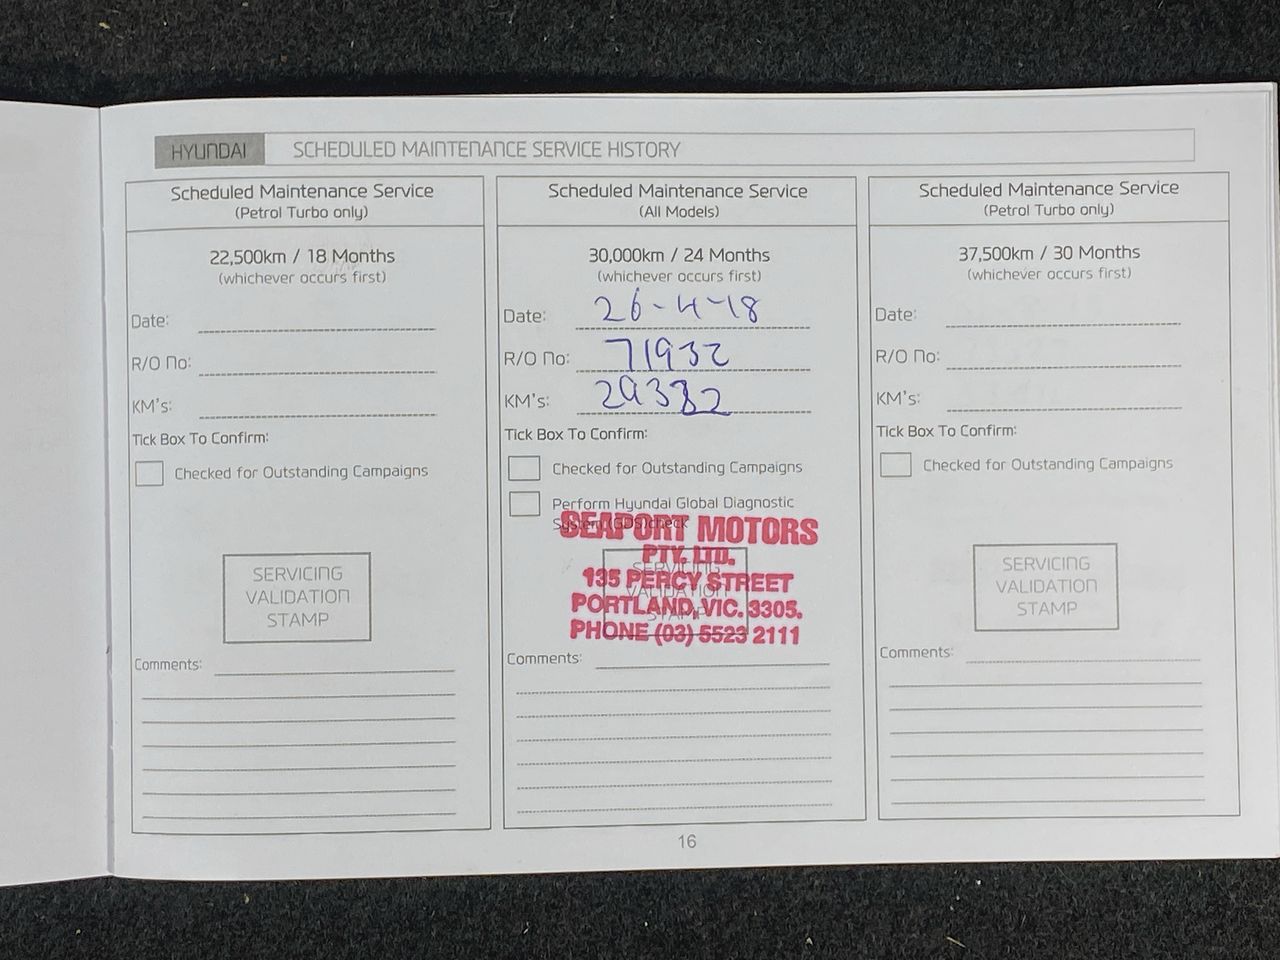 HYUNDAI SCHEDULED MAINTENANCE SERVICE HISTORY
Scheduled Maintenance Service
(Petrol Turbo only)
22,500km / 18 Months
(whichever occurs first)
Date:
R/O No:
KM's:
Tick Box To Confirm:
Checked for Outstanding Campaigns
SERVICING
VALIDATION
STAMP
Comments:
Scheduled Maintenance Service
(All Models)
30,000km / 24 Months
(whichever occurs first)
Date: 26-4-18
R/O No: 71932
KM's: 29382
Tick Box To Confirm:
Checked for Outstanding Campaigns
Perform Hyundai Global Diagnostic
System (GDS) check
SEAPORT MOTORS
PTY. LTD.
135 PERCY STREET
PORTLAND, VIC. 3305.
PHONE (03) 5523 2111
SERVICING
VALIDATION
STAMP
Comments:
Scheduled Maintenance Service
(Petrol Turbo only)
37,500km / 30 Months
(whichever occurs first)
Date:
R/O No:
KM's:
Tick Box To Confirm:
Checked for Outstanding Campaigns
SERVICING
VALIDATION
STAMP
Comments:
16